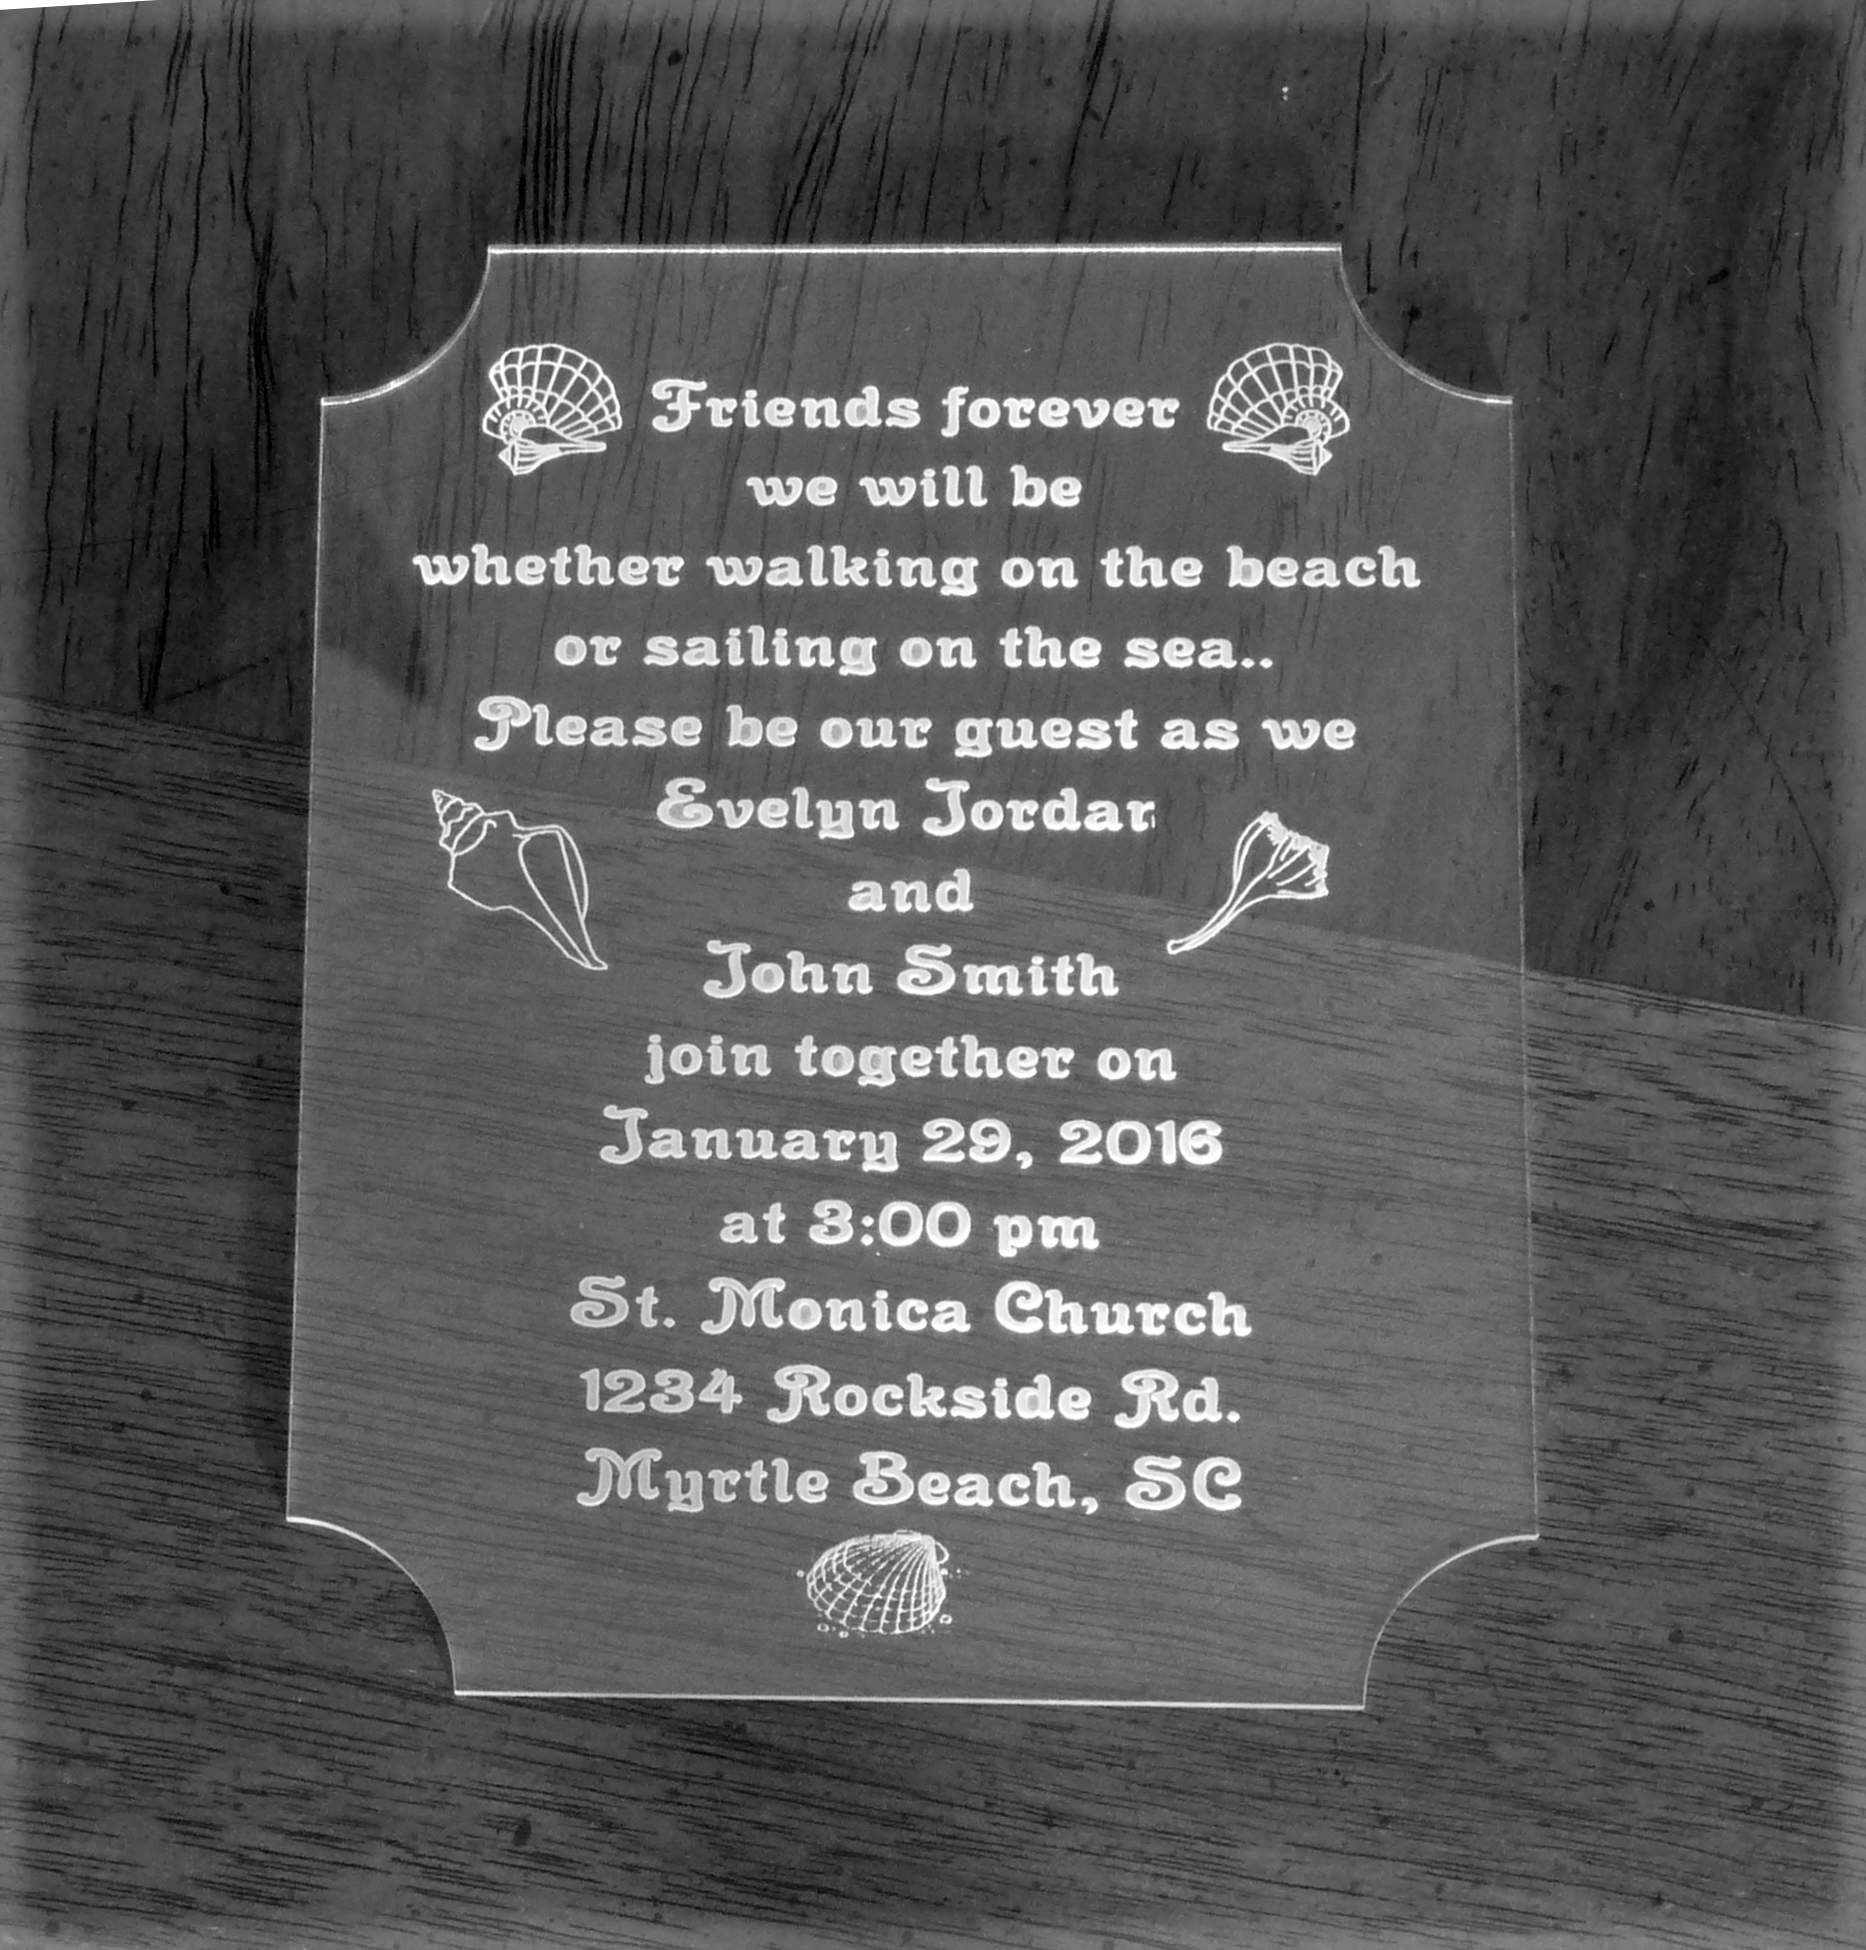 Friends forever
we will be
whether walking on the beach
or sailing on the sea..
Please be our guest as we
Evelyn Jordan
and
John Smith
join together on
January 29, 2016
at 3:00 pm
St. Monica Church
1234 Rockside Rd.
Myrtle Beach, SC